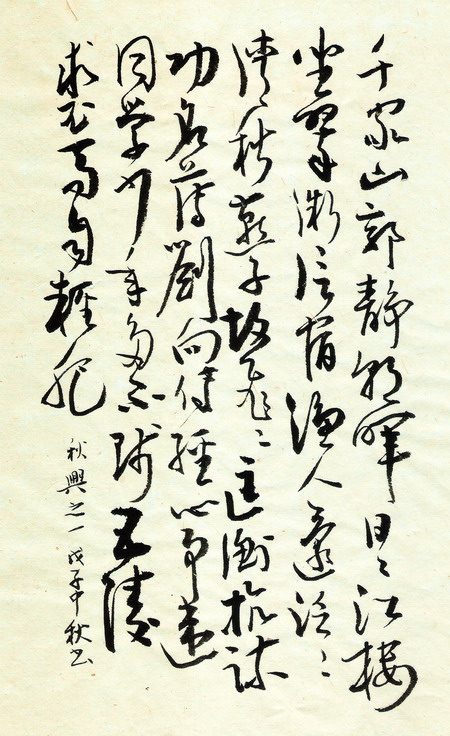 千家山郭靜朝暉日〻江樓
坐翠微信宿漁人還泛〻
清秋燕子故飛〻匡衡抗疏
功名薄劉向傳經心事違
同學少年多不賤五陵
裘馬自輕肥
秋興之一 戊子中秋书